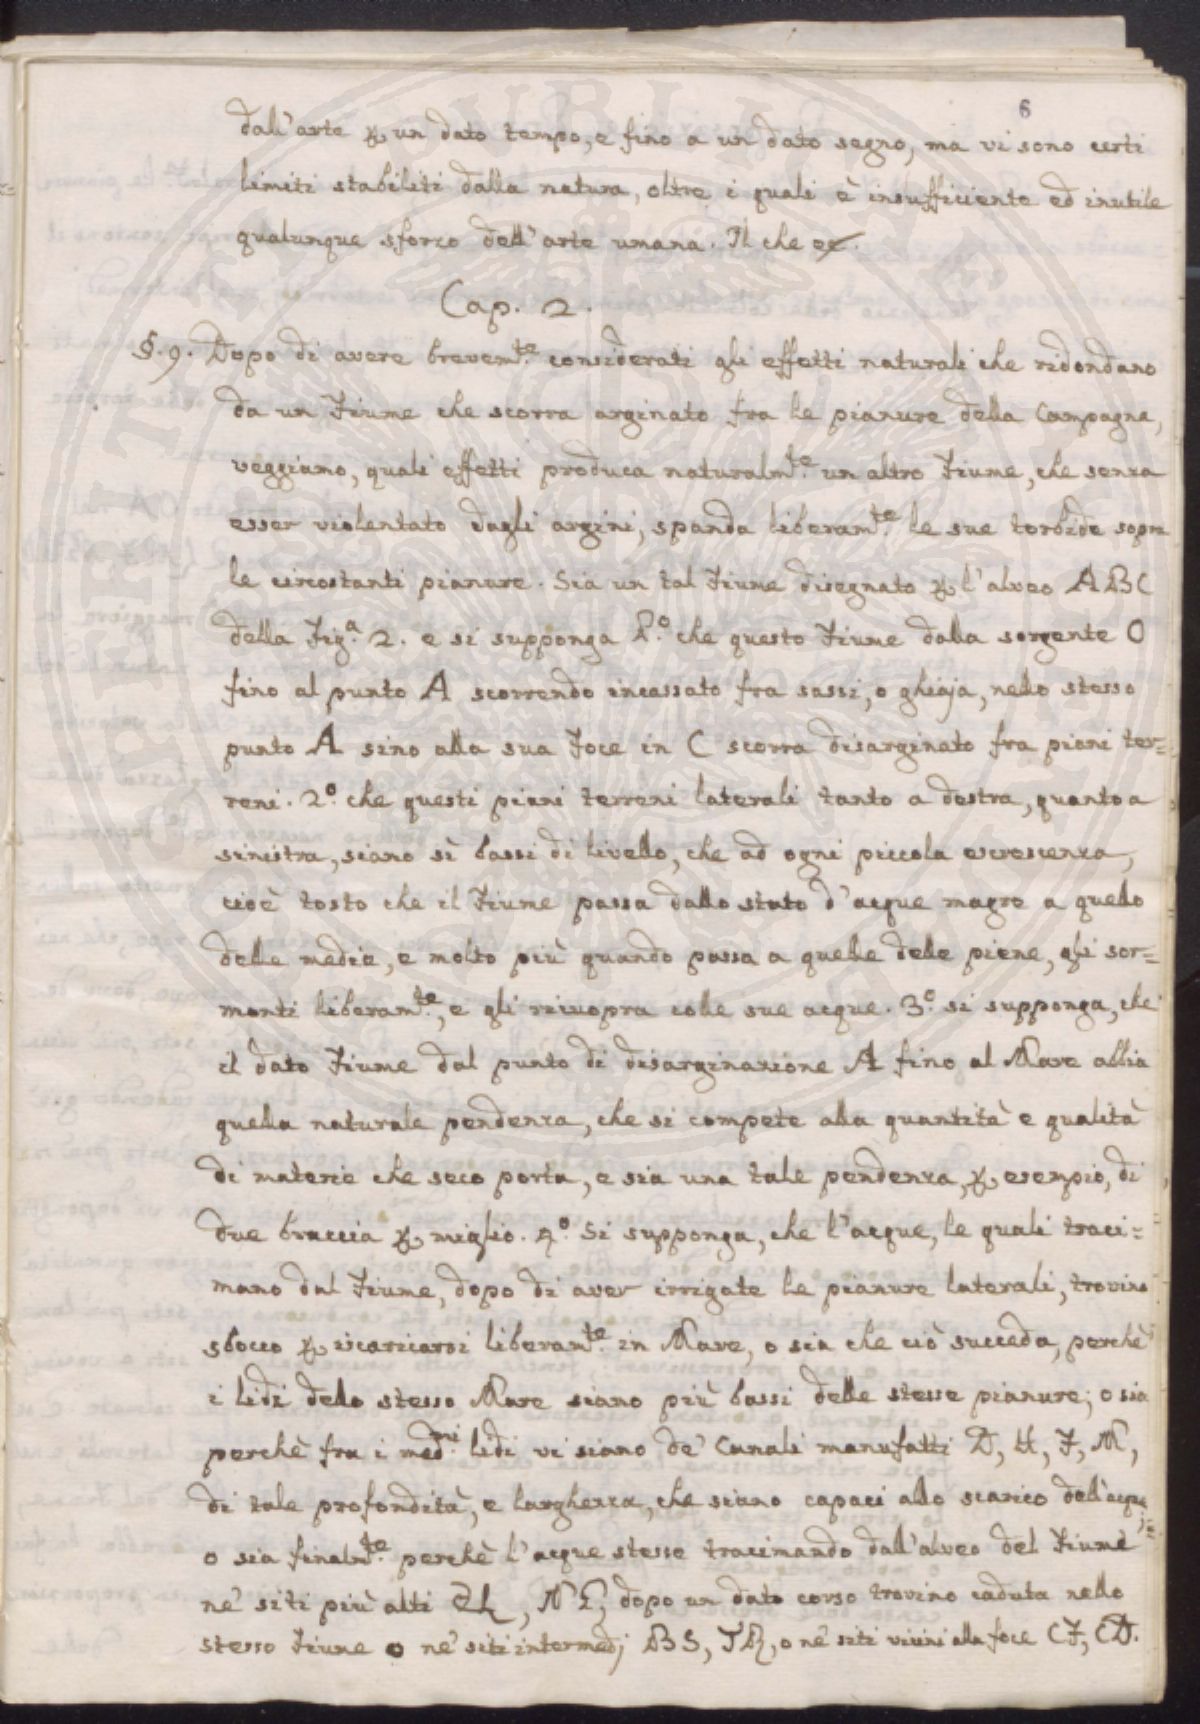 6
dall'arte per un dato tempo, e fino a un dato segno, ma vi sono certi
limiti stabiliti dalla natura, oltre i quali è insufficiente ed inutile
qualunque sforzo dell'arte umana. Il che ec.
Cap. 2.
§. 9. Dopo di avere brevemte. considerati gli effetti naturali che ridondano
da un Fiume che scorra arginato fra le pianure della Campagna,
veggiamo, quali effetti produca naturalmte. un altro Fiume, che senza
esser violentato dagli argini, spanda liberamte. le sue torbide sopra
le circostanti pianure. Sia un tal Fiume disegnato per l'alveo ABC
della Figa. 2. e si supponga Po. che questo Fiume dalla sorgente O
fino al punto A scorrendo incassato fra sassi, o ghiaja, nello stesso
punto A sino alla sua Foce in C scorra disarginato fra piani ter=
reni. 2o. che questi piani terreni laterali tanto a destra, quanto a
sinistra, siano sì bassi di livello, che ad ogni piccola escrescenza,
cioè tosto che il Fiume passa dallo stato d'acque magre a quello
delle medie, e molto più quando passa a quelle delle piene, gli sor=
monti liberamte., e gli ricuopra colle sue acque. 3o. si supponga, che
il dato Fiume dal punto di disarginazione A fino al Mare abbia
quella naturale pendenza, che si compete alla quantità e qualità
di materie che seco porta, e sia una tale pendenza, per esempio, di
due braccia per miglio. 4o. Si supponga, che l'acque, le quali traci=
mano dal Fiume, dopo di aver irrigate le pianure laterali, trovino
sbocco per iscaricarsi liberamte. in Mare, o sia che ciò succeda, perchè
i lidi dello stesso Mare siano più bassi delle stesse pianure; o sia
perchè fra i medmi. lidi vi siano de' Canali manufatti D, H, F, M,
di tale profondità, e larghezza, che siano capaci allo scarico dell'acque;
o sia finalmte. perchè l'acque stesse tracimando dall'alveo del Fiume
ne' siti più alti , N E, dopo un dato corso trovino caduta nello
stesso Fiume o ne' siti intermedj BS, TR, o ne' siti vicini alla foce CF, CD.